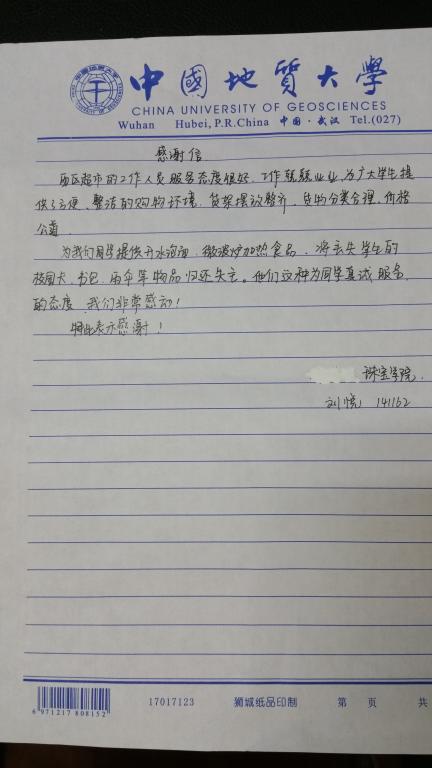 中國地質大學
CHINA UNIVERSITY OF GEOSCIENCES
Wuhan Hubei, P.R.China 中国·武汉 Tel.(027)
感谢信
西区超市的工作人员服务态度很好,工作兢兢业业,为广大学生提
供了方便、整洁的购物环境,货架摆放整齐,货物分类合理,价格
公道.
为我们同学提供开水泡面,微波炉加热食品,将丢失学生的
校园卡、书包、雨伞等物品归还失主。他们这种为同学真诚服务
的态度,我们非常感动!
特此表示感谢!
珠宝学院.
刘悦 141162
6 971217 808152
17017123
狮城纸品印制
第 页 共